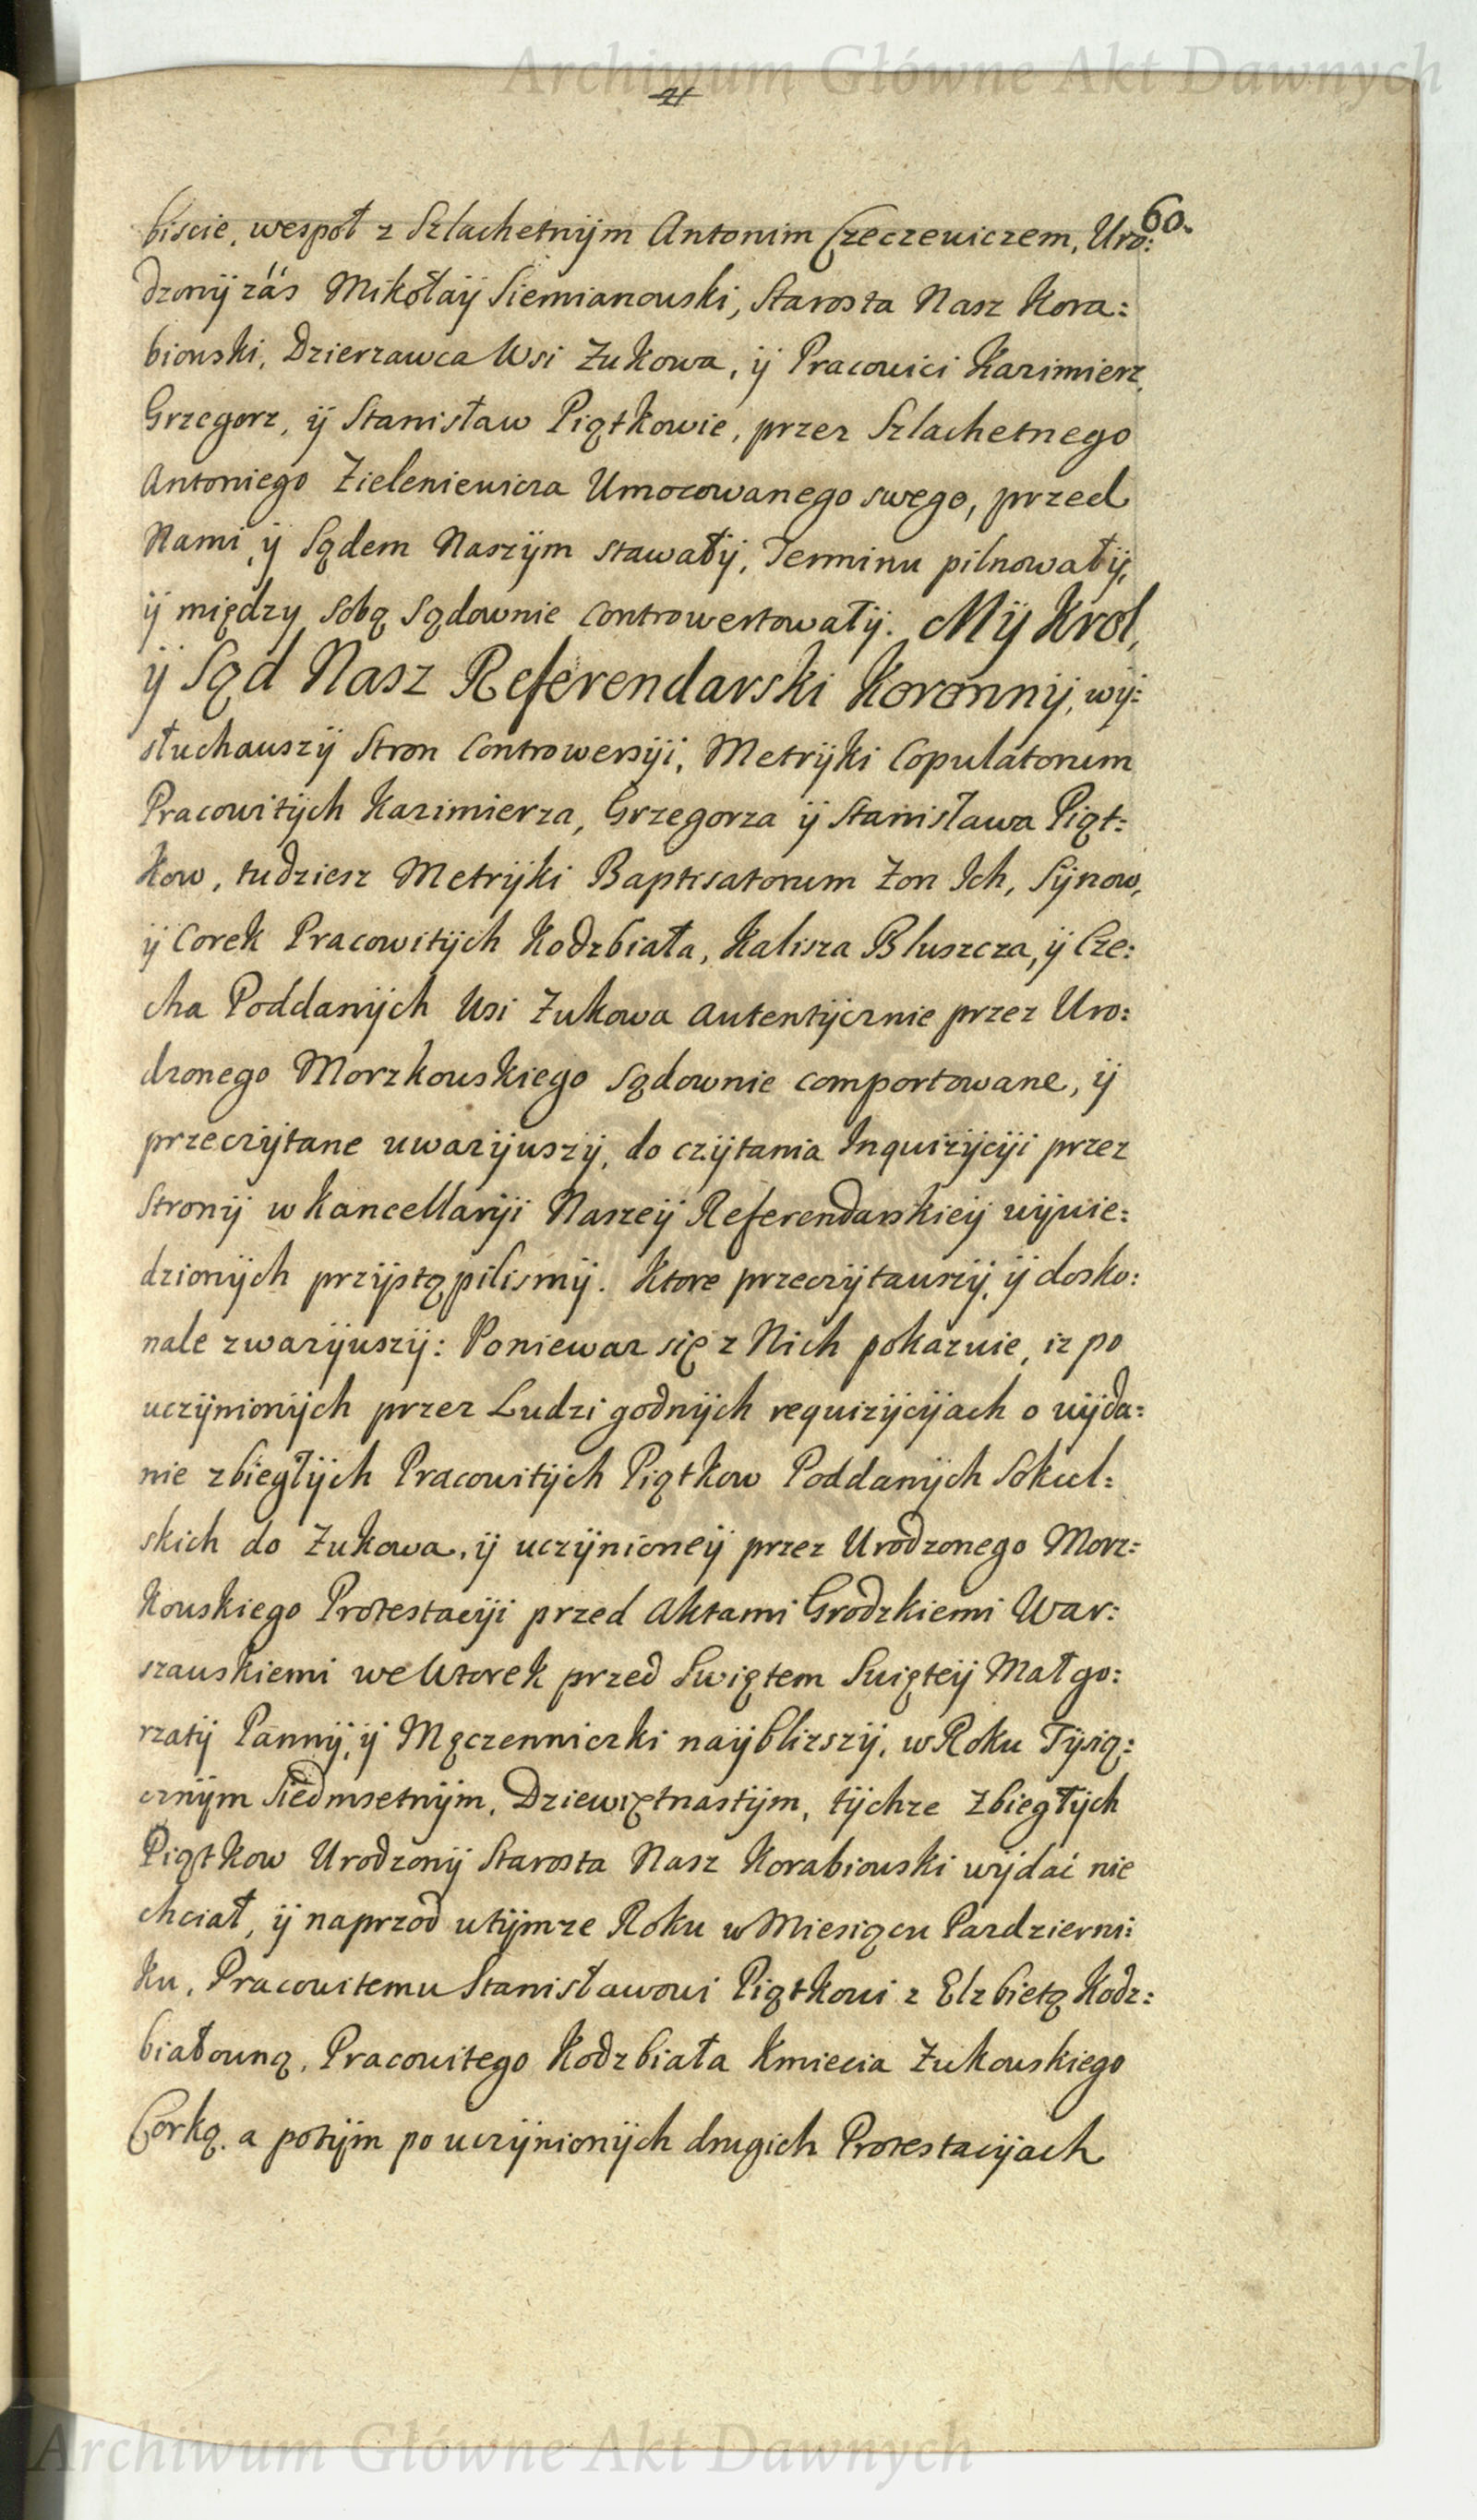 Archiwum Główne Akt Dawnych
21
60.
biscie, wespoł z Szlachetnÿm Antonim Czeczewiczem, Uro:
dzonÿ zás Mikołaÿ Siemianowski, Starosta Nasz Kora:
biowski, Dzierzawca Wsi Zukowa, ÿ Pracowici Kazimierz,
Grzegorz, ÿ Stanisław Piątkowie, przez Szlachetnego
Antoniego Zieleniewicza Umocowanego swego, przed
Nami, ÿ Sądem Naszÿm stawałÿ, Terminu pilnowałÿ,
ÿ międzÿ sobą Sądownie controwertowałÿ. MŸ Krol,
ÿ Sąd Nasz Referendarski Koronnÿ, wÿ:
słuchawszÿ Stron Controwersÿi, Metrÿki Copulatorum
Pracowitÿch Kazimierza, Grzegorza ÿ Stanisława Piąt:
kow, tudziesz Metrÿki Baptisatorum Zon Ich, Sÿnow,
ÿ Corek Pracowitÿch Kodzbiała, Kalisza Bluszcza, ÿ Cze:
cha Poddanÿch Wsi Zukowa autentÿcznie przez Uro:
dzonego Morzkowskiego sądownie comportowane, ÿ
przeczÿtane uwazÿwszÿ, do czÿtania Inquizÿcÿi przez
Stronÿ w Kancellarÿi Naszeÿ Referendarskieÿ wÿwie:
dzionÿch przÿstąpilismÿ. Ktore przeczÿtawszÿ, ÿ dosko:
nale zwazÿwszÿ: Poniewaz się z Nich pokazuie, iz po
uczÿnionÿch przez Ludzi godnÿch requizÿcÿiach o wÿda:
nie zbiegłÿch Pracowitÿch Piątkow Poddanÿch Sokul:
skich do Zukowa, ÿ uczÿnioneÿ przez Urodzonego Morz:
kowskiego Protestacÿi przed Aktami Grodzkiemi War:
szawskiemi we Wtorek przed Swiętem Swięteÿ Małgo:
rzatÿ Pannÿ, ÿ Męczenniczki naÿblizszÿ, w Roku Tÿsią:
cznÿm Siedmsetnÿm, Dziewiętnastÿm, tÿchze zbiegłÿch
Piątkow Urodzonÿ Starosta Nasz Korabiowski wÿdać nie
chciał, ÿ naprzod w tÿmze Roku w Miesiącu Pazdzierni:
ku, Pracowitemu Stanisławowi Piątkowi z Elzbietą Kodz:
białowną, Pracowitego Kodzbiała Kmiecia Zukowskiego
Corką. a potÿm po uczÿnionÿch drugich Protestacÿiach
Archiwum Główne Akt Dawnych